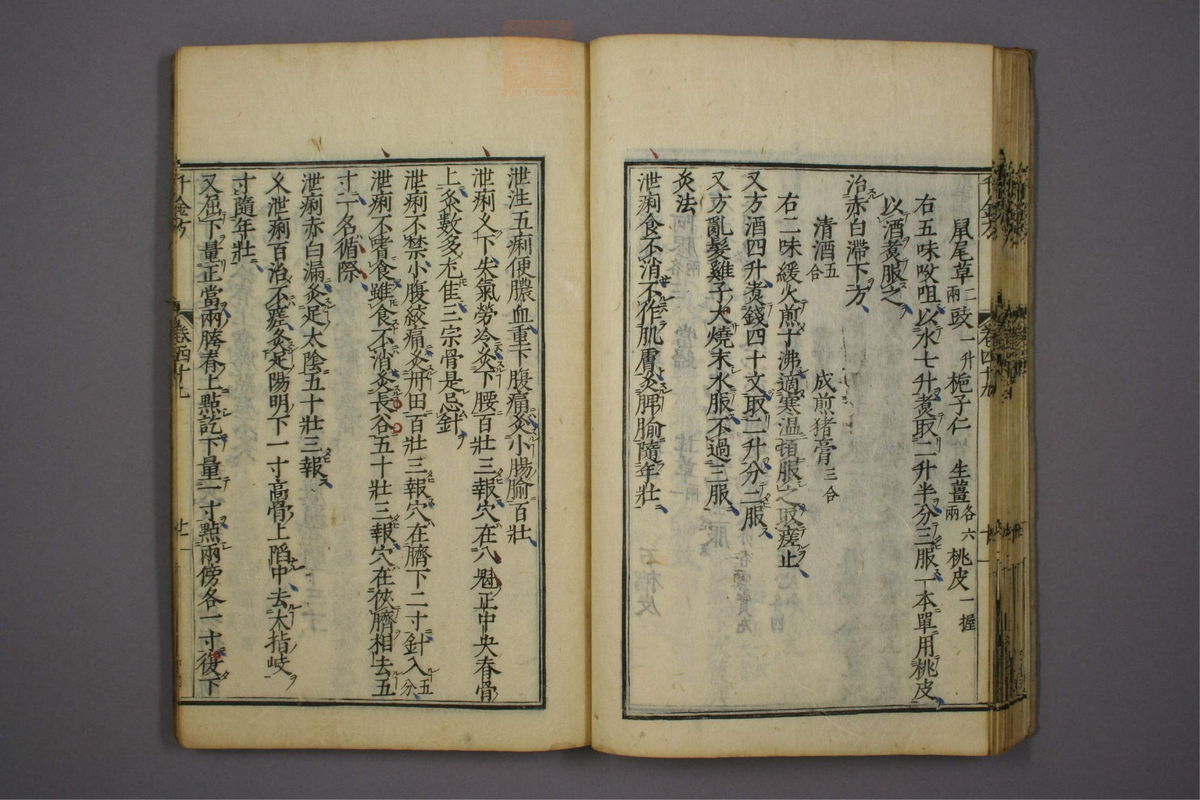 千金方
卷四十九
鼠尾草二兩 豉一升 梔子仁 生薑各六兩 桃皮一握
右五味㕮咀以水七升煑取二升半分三服一本單用桃皮
以酒煑服之
治赤白滯下方
清酒五合 成煎猪膏三合
右二味緩火煎十沸適寒温頓服之取瘥止
又方酒四升煑錢四十文取二升分三服
又方亂髮雞子大燒末水服不過三服
灸法
泄痢食不消不作肌膚灸脾腧隨年壯
泄注五痢便膿血重下腹痛灸小腸腧百壯
泄痢久下失氣勞冷灸下腰百壯三報穴在八魁正中央脊骨
上灸數多尤佳三宗骨是忌針
泄痢不禁小腹絞痛灸丹田百壯三報穴在臍下二寸針入五分
泄痢不嗜食雖食不消灸長谷五十壯三報穴在俠臍相去五
寸一名循際
泄痢赤白漏灸足太陰五十壯三報
久泄痢百治不瘥灸足陽明下一寸高骨上陷中去大指岐
寸隨年壯
又屈下量正當兩胯脊上點訖下量一寸點兩傍各一寸復下
千金方
卷四十九